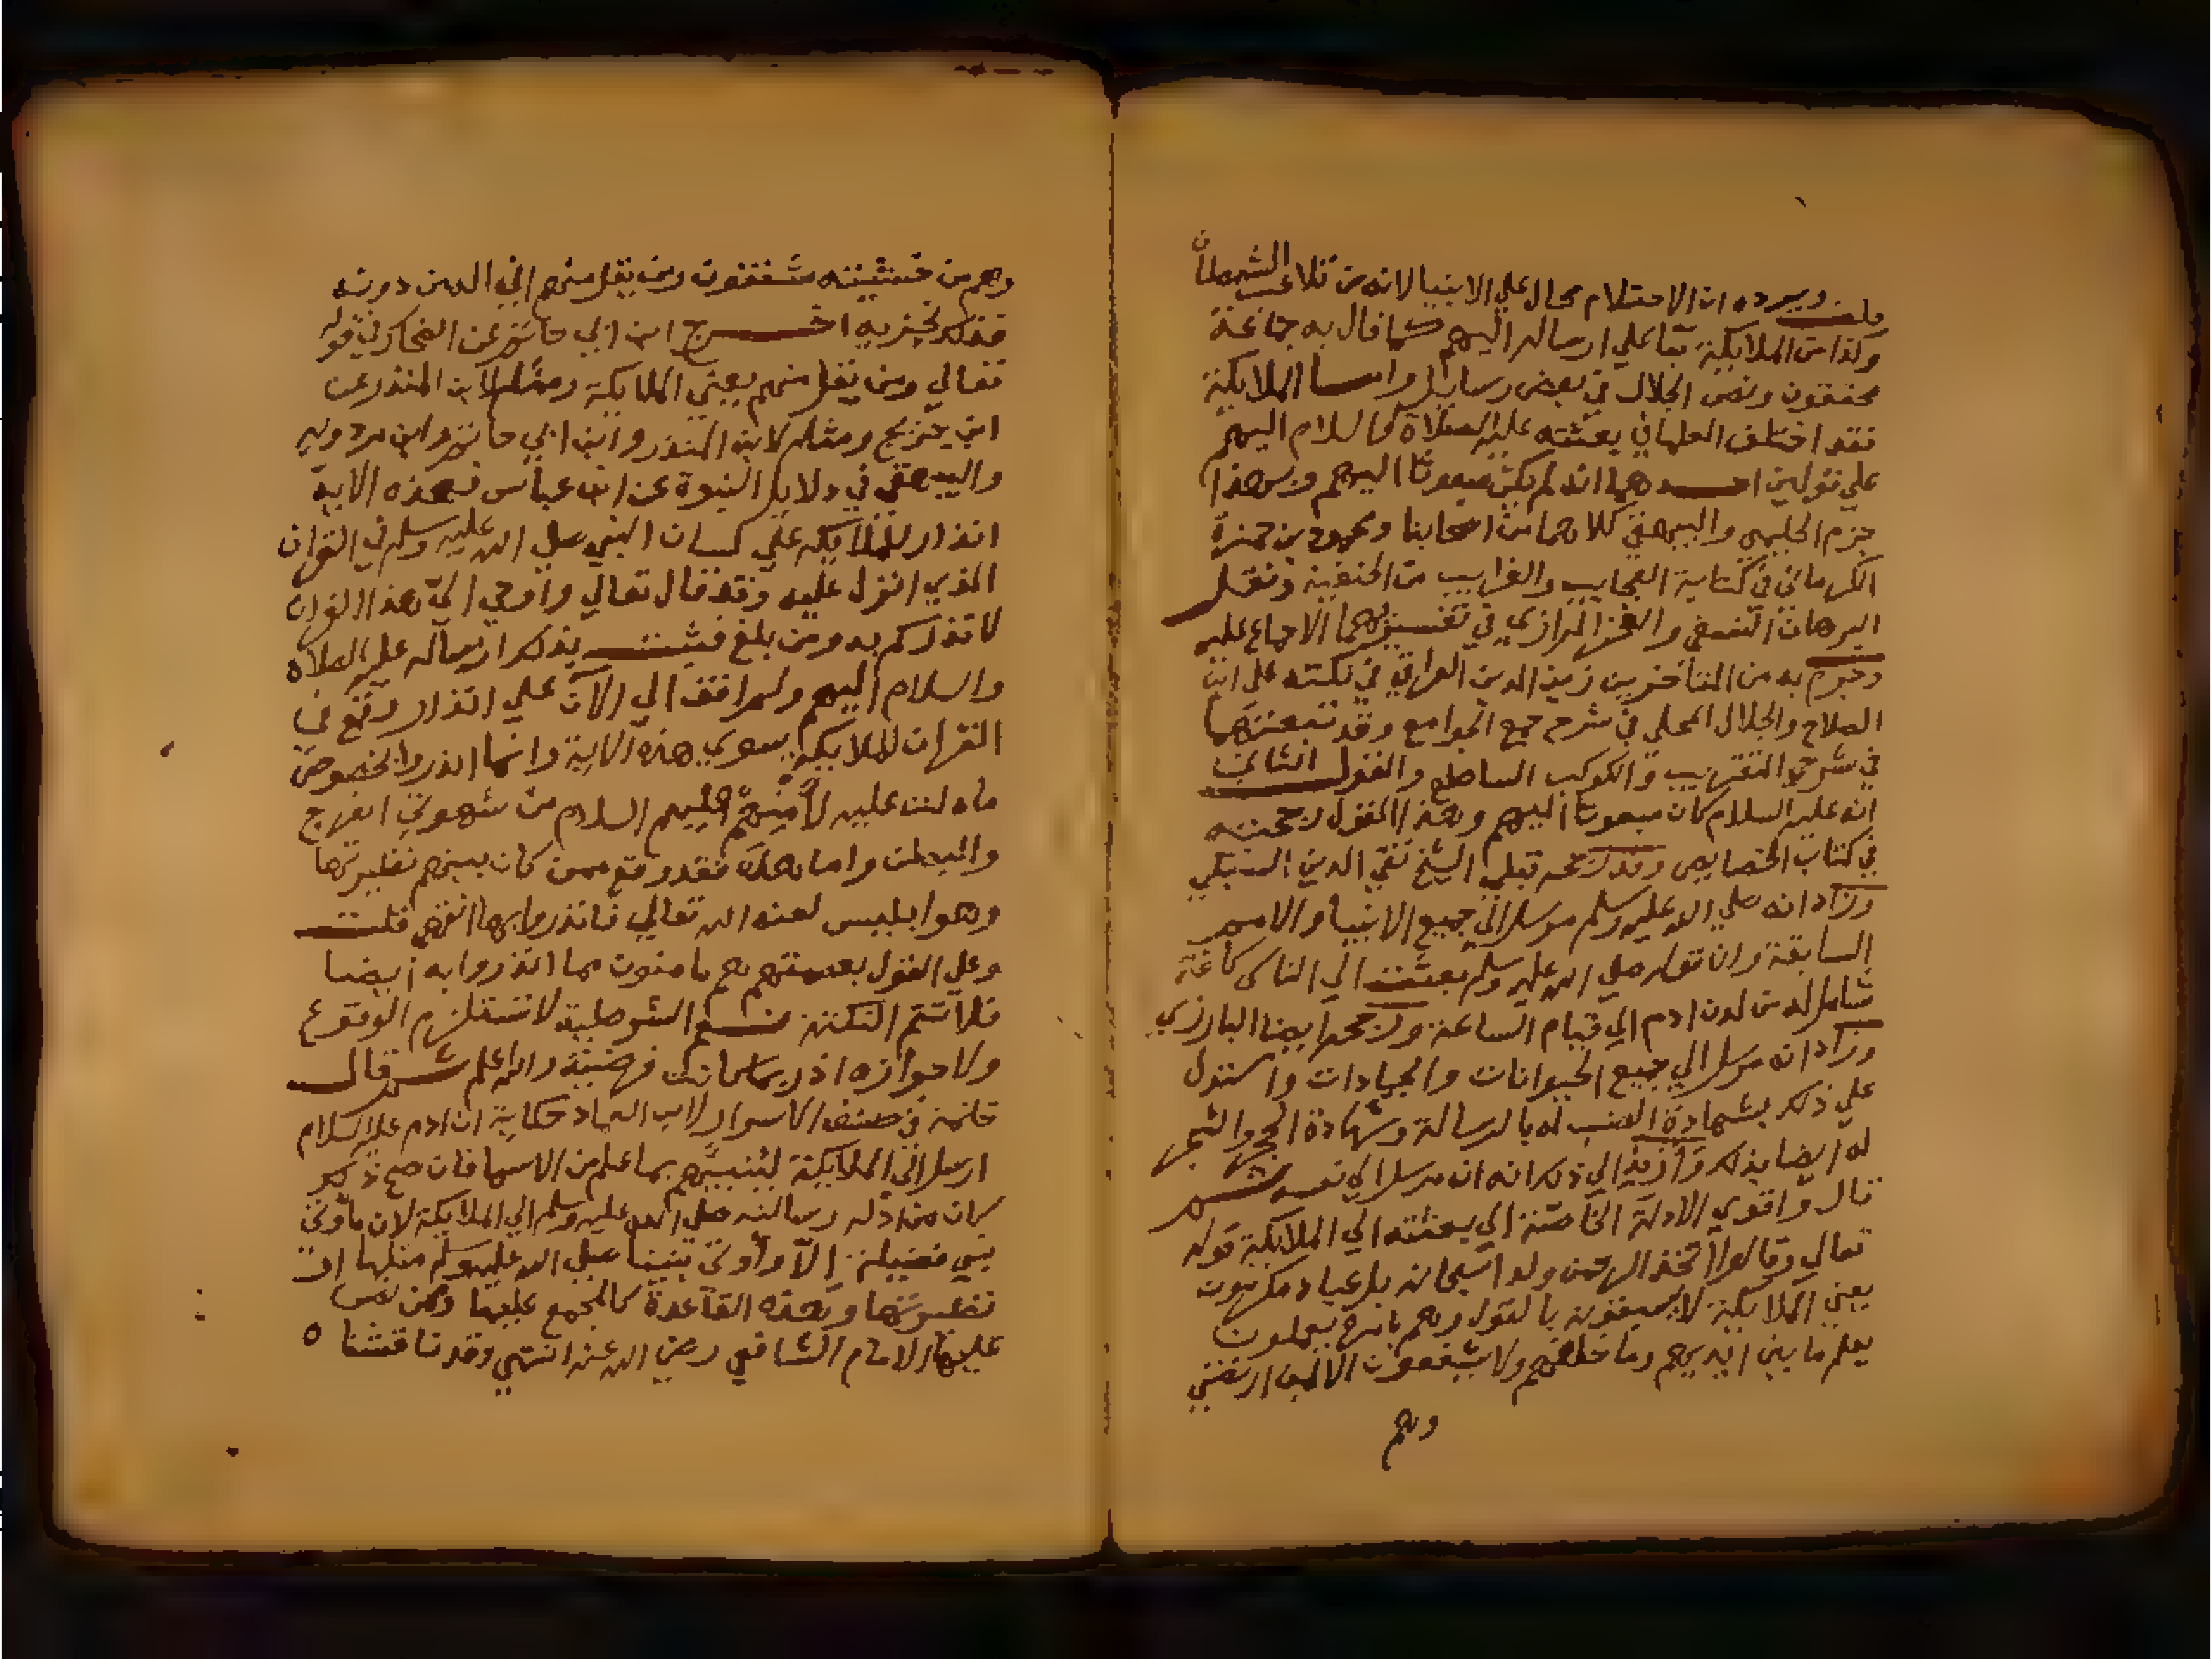 قلت ويرده ان الاحتلام محال علي الانبيا لانه من تلاعب الشيطان
وكذا من الملايكة بنا علي ارساله اليهم كما قال به جماعة
محققون ونص الجلال في بعض رسايله واما الملايكة
فقد اختلف العلما في بعثته عليه الصلاة والسلام اليهم
علي قولين احدهما انه لم يكن مبعوثا اليهم وبهذا
جزم الحليمي والبيهقي كلاهما من اصحابنا ومحمود بن حمزة
الكرماني في كتابه العجايب والغرايب من الحنفية ونقل
البرهان النسفي والفخر الرازي في تفسيريهما الاجماع عليه
وجزم به من المتاخرين زين الدين العراقي في نكته علي ابن
الصلاح والجلال المحلي في شرح جمع الجوامع وقد تبعتهما
في شرحي التقريب والكوكب الساطع والقول الثاني
انه عليه السلام كان مبعوثا اليهم وهذا القول رجحته
في كتاب الخصايص وقد رجحه قبلي الشيخ تقي الدين السبكي
وزاد انه صلي الله عليه وسلم مرسل الي جميع الانبيا والامم
السابقة وان قوله صلي الله عليه وسلم بعثت الي الناس كافة
شامل له من لدن ادم الي قيام الساعة ورجحه ايضا البارزي
وزاد انه مرسل الي جميع الحيوانات والجمادات واستدل
علي ذلك بشهادة الضب له بالرسالة وشهادة الحجر والشجر
له ايضا بذلك وأزيد الي ذلك انه ان مرسل الي نفسه ثم
قال واقوي الادلة الخاصة الي بعثته الي الملايكة قوله
تعالي وقالوا اتخذ الرحمن ولدا سبحانه بل عباد مكرمون
يعني الملايكة لا يسبقونه بالقول وهم بامره يعملون
يعلم ما بين ايديهم وما خلفهم ولا يشفعون الا لمن ارتضي
وهم
وهم من خشيته مشفقون ومن يقل منهم اني اله من دونه
فذلك نجزيه اخرج ابن ابي حاتم عن الضحاك في قوله
تعالي ومن يقل منهم يعني الملايكة ومثله لابن المنذر عن
ابن جريج ومثله لابن المنذر وابن ابي حاتم وابن مردويه
والبيهقي في دلايل النبوة عن ابن عباس فهذه الاية
انذار للملايكة علي لسان النبي صلي الله عليه وسلم في القران
الذي انزل عليه وقد قال تعالي واوحي الي هذا القران
لانذركم به ومن بلغ فثبت بذلك ارساله عليه الصلاه
والسلام اليهم ولم اقف الي الآن علي انذار وقع في
القران للملايكة سوي هذه الاية وانما انذروا بخصوص
ماه لنت عليه لأمنهم عليهم السلام من شهوتي الفرج
والبطن واما هذه فقد وقع ممن كان بينهم نظيرتها
وهو ابليس لعنه الله تعالي فانذروا بها انتهي قلت
وعلي القول بعصمتهم هم مامنون مما انذروا به ايضا
فلا تتم النكتة مع الشرطية لا تستلزم الوقوع
ولا جوازه اذ ربما كانت فرضية والله اعلم ثم قال
خاتمة في كشف الاسرار لابن العماد حكاية ان ادم عليه السلام
ارسل الي الملايكة لينبيهم بما علم من الاسما فان صح ذلك
كان من ادلة رسالته صلي الله عليه وسلم الي الملايكة لان ما اوتي
نبي فضيلة الا واوتي نبينا صلي الله عليه وسلم مثلها او
نظيرتها وهذه القاعدة كالمجمع عليها وممن نص
عليها الامام الشافعي رضي الله عنه انتهي وقد ناقشنا ه